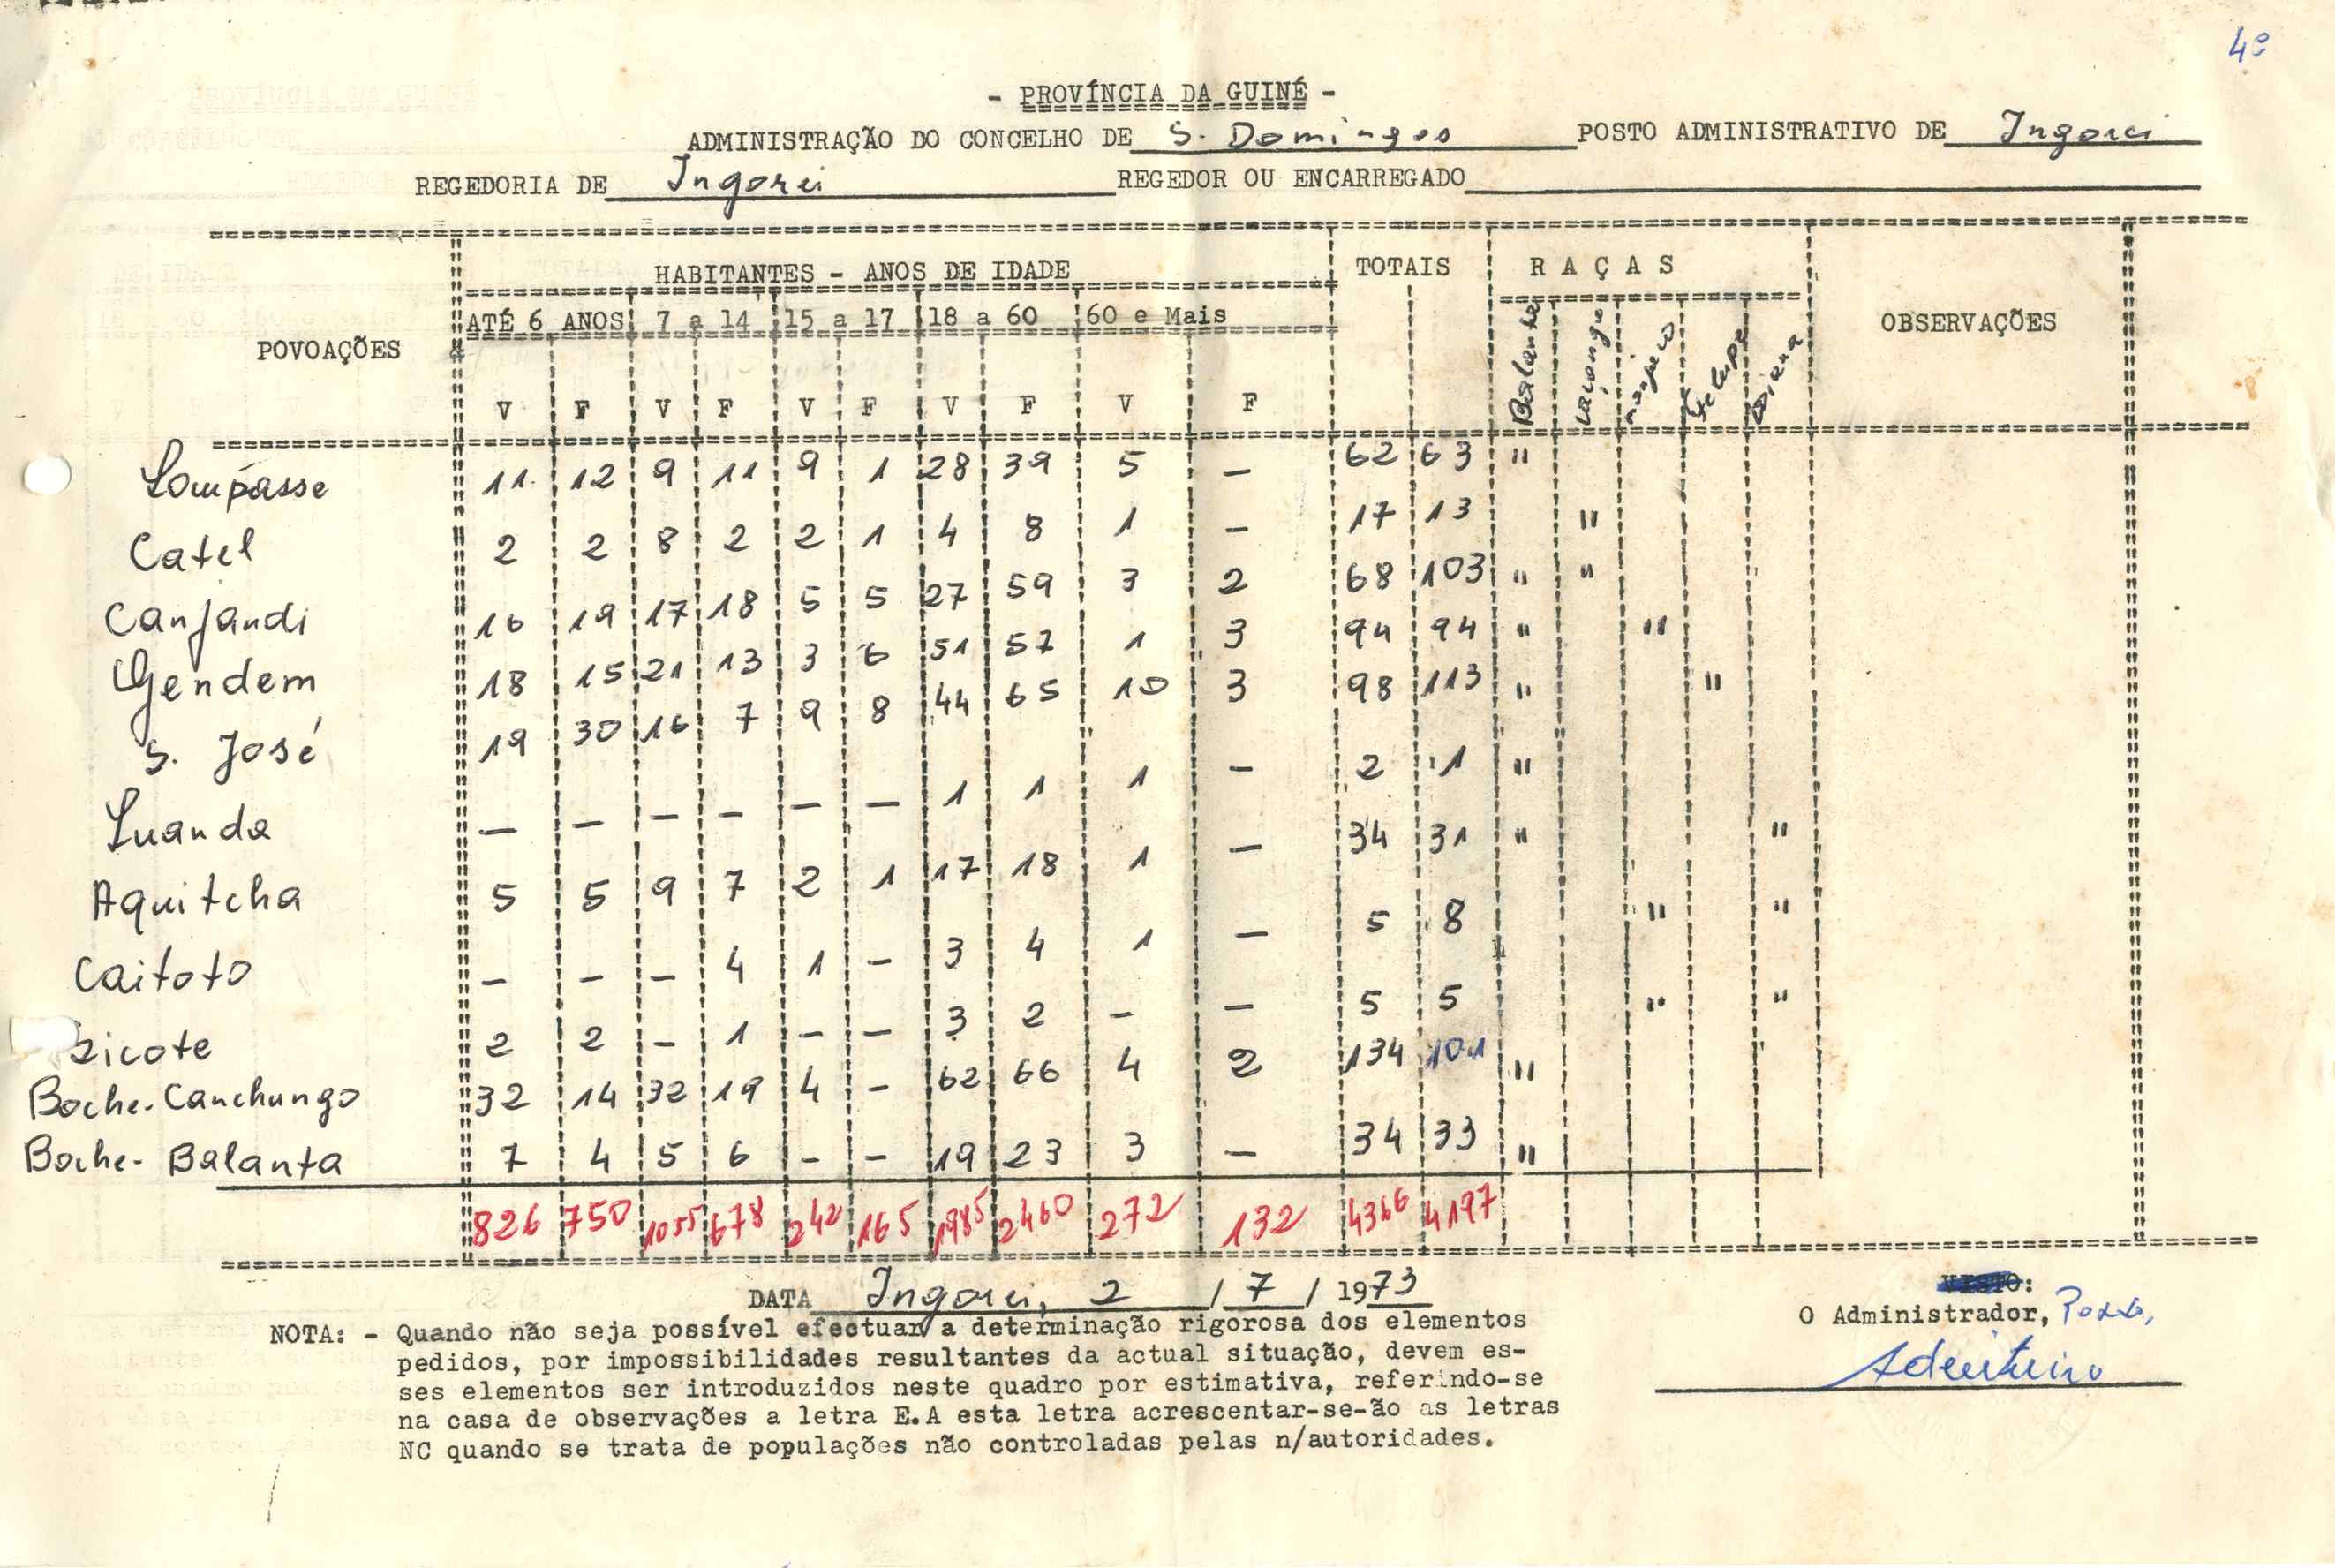 4º
- PROVÍNCIA DA GUINÉ -
ADMINISTRAÇÃO DO CONCELHO DE S. Domingos POSTO ADMINISTRATIVO DE Ingorei
REGEDORIA DE Ingorei REGEDOR OU ENCARREGADO
HABITANTES - ANOS DE IDADE TOTAIS RAÇAS
POVOAÇÕES ATÉ 6 ANOS 7 a 14 15 a 17 18 a 60 60 e Mais Balanta OBSERVAÇÕES
V F V F V F V F V F
Lompasse 11 12 9 11 9 1 28 39 5 — 62 63 "
Catel 2 2 8 2 2 1 4 8 1 — 17 13 "
Canjandi 16 19 17 18 5 5 27 59 3 2 68 103 " "
Gendem 18 15 21 13 3 6 51 57 1 3 94 94 " "
S. José 19 30 16 7 9 8 44 65 10 3 98 113 " "
Luanda — — — — — — 1 1 1 — 2 1 "
Aquitcha 5 5 9 7 2 1 17 18 1 — 34 31 " "
Caitoto — — — 4 1 — 3 4 1 — 5 8 " "
2 2 — 1 — — 3 2 — — 5 5 " "
Boche-Canchungo 32 14 32 19 4 - 62 66 4 2 134 101 "
Boche-Balanta 7 4 5 6 - - 19 23 3 — 34 33 "
826 750 1055 678 242 165 1985 2460 272 132 4366 4197
DATA Ingorei, 2 / 7 / 1973
VISTO:
O Administrador, Posto,
NOTA: - Quando não seja possível efectuar a determinação rigorosa dos elementos
pedidos, por impossibilidades resultantes da actual situação, devem es-
ses elementos ser introduzidos neste quadro por estimativa, referindo-se
na casa de observações a letra E.A esta letra acrescentar-se-ão as letras
NC quando se trata de populações não controladas pelas n/autoridades.